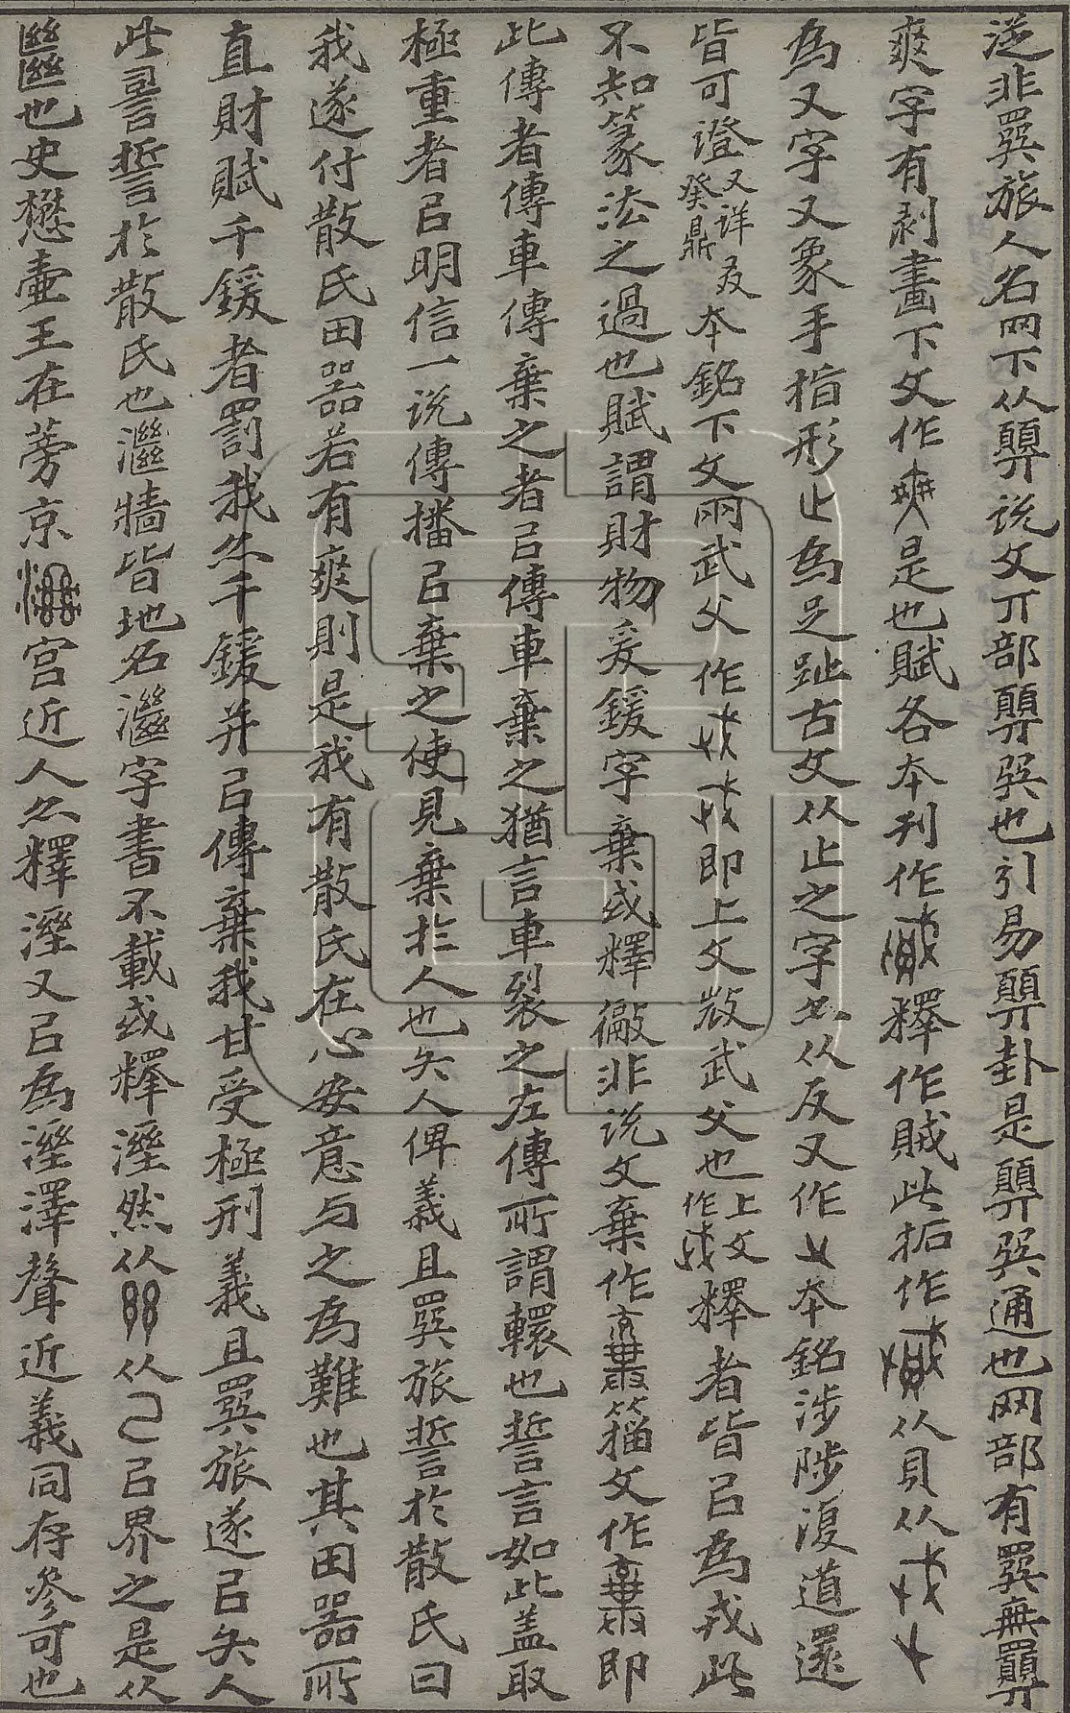 逆非䍻旅人名网下从顨说文丌部顨巺也引易顨卦是顨巺通也网部有䍻無
爽字有剥畫下文作是也賦各本刋作釋作賊此拓作从貝从戌
為又字又象手指形止為足趾古文从止之字亼从反又作本銘涉陟復道還
皆可證又详癸鼎本銘下文兩武父作戎戎即上文㪔武父也上文作戎釋者皆㠯為戎此
不知篆法之過也賦謂財物爰鍰字棄或釋㪣非说文棄作籀文作即
此傳者傳車傳棄之者㠯傳車棄之猶言車裂之左傳所謂轘也誓言如此盖取
極重者㠯明信一说傳播㠯棄之使見棄於人也矢人俾義且䍻旅誓於散氏曰
我遂付散氏田器若有爽則是我有散氏在心安意与之為難也其田器所
直財賦千鍰者罰我亼千鍰并㠯傳棄我甘受極刑義且䍻旅遂㠯矢人
此誓於散氏也牆皆地名字書不載或釋溼然从从㠯界之是从
也史懋壷王在䓊京宫近人亼釋溼又㠯為溼澤聲近義同存參可也